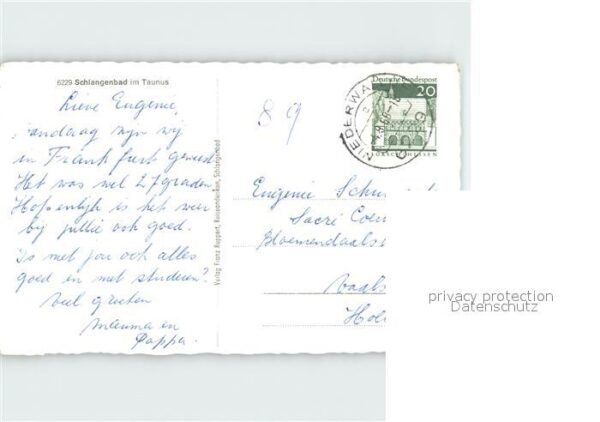 6229 Schlangenbad im Taunus
Lieve Eugenie,
Vandaag zijn wij
in Frankfurt geweest
Het was wel 27 graden
Hopenlijk is het weer
bij jullie ook goed.
Is met jou ook alles
goed en met studeren?
Veel groeten
Mamma en
Pappa.
Verlag Franz Ruppert, Schlangenbad
89
Deutsche Bundespost
20
LORSCH/HESSEN
NIEDERWA
Eugenie Schu
Sacré Coeu
Bloemendaals
Vaals
Hol
privacy protection
Datenschutz